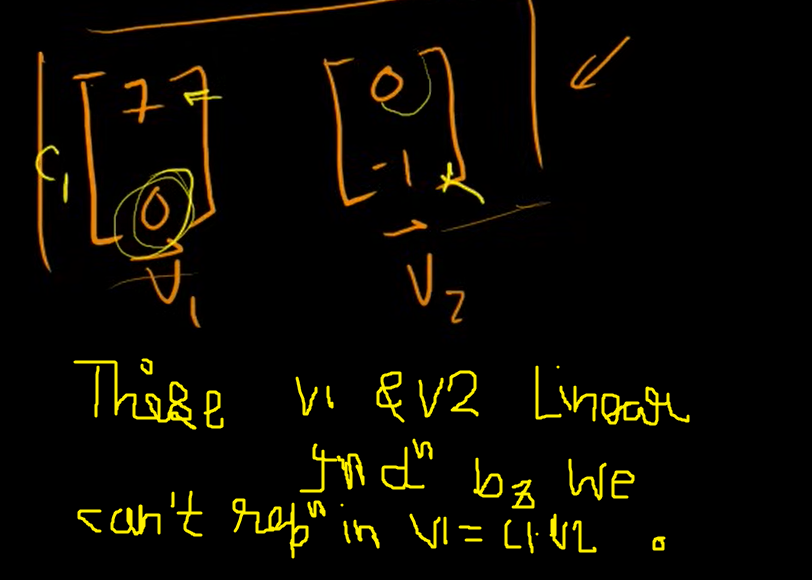 7 0
C1
0 -1
V1 V2
These V1 & V2 Linear
Indⁿ bz We
can't repⁿ in V1 = C1·V2 .